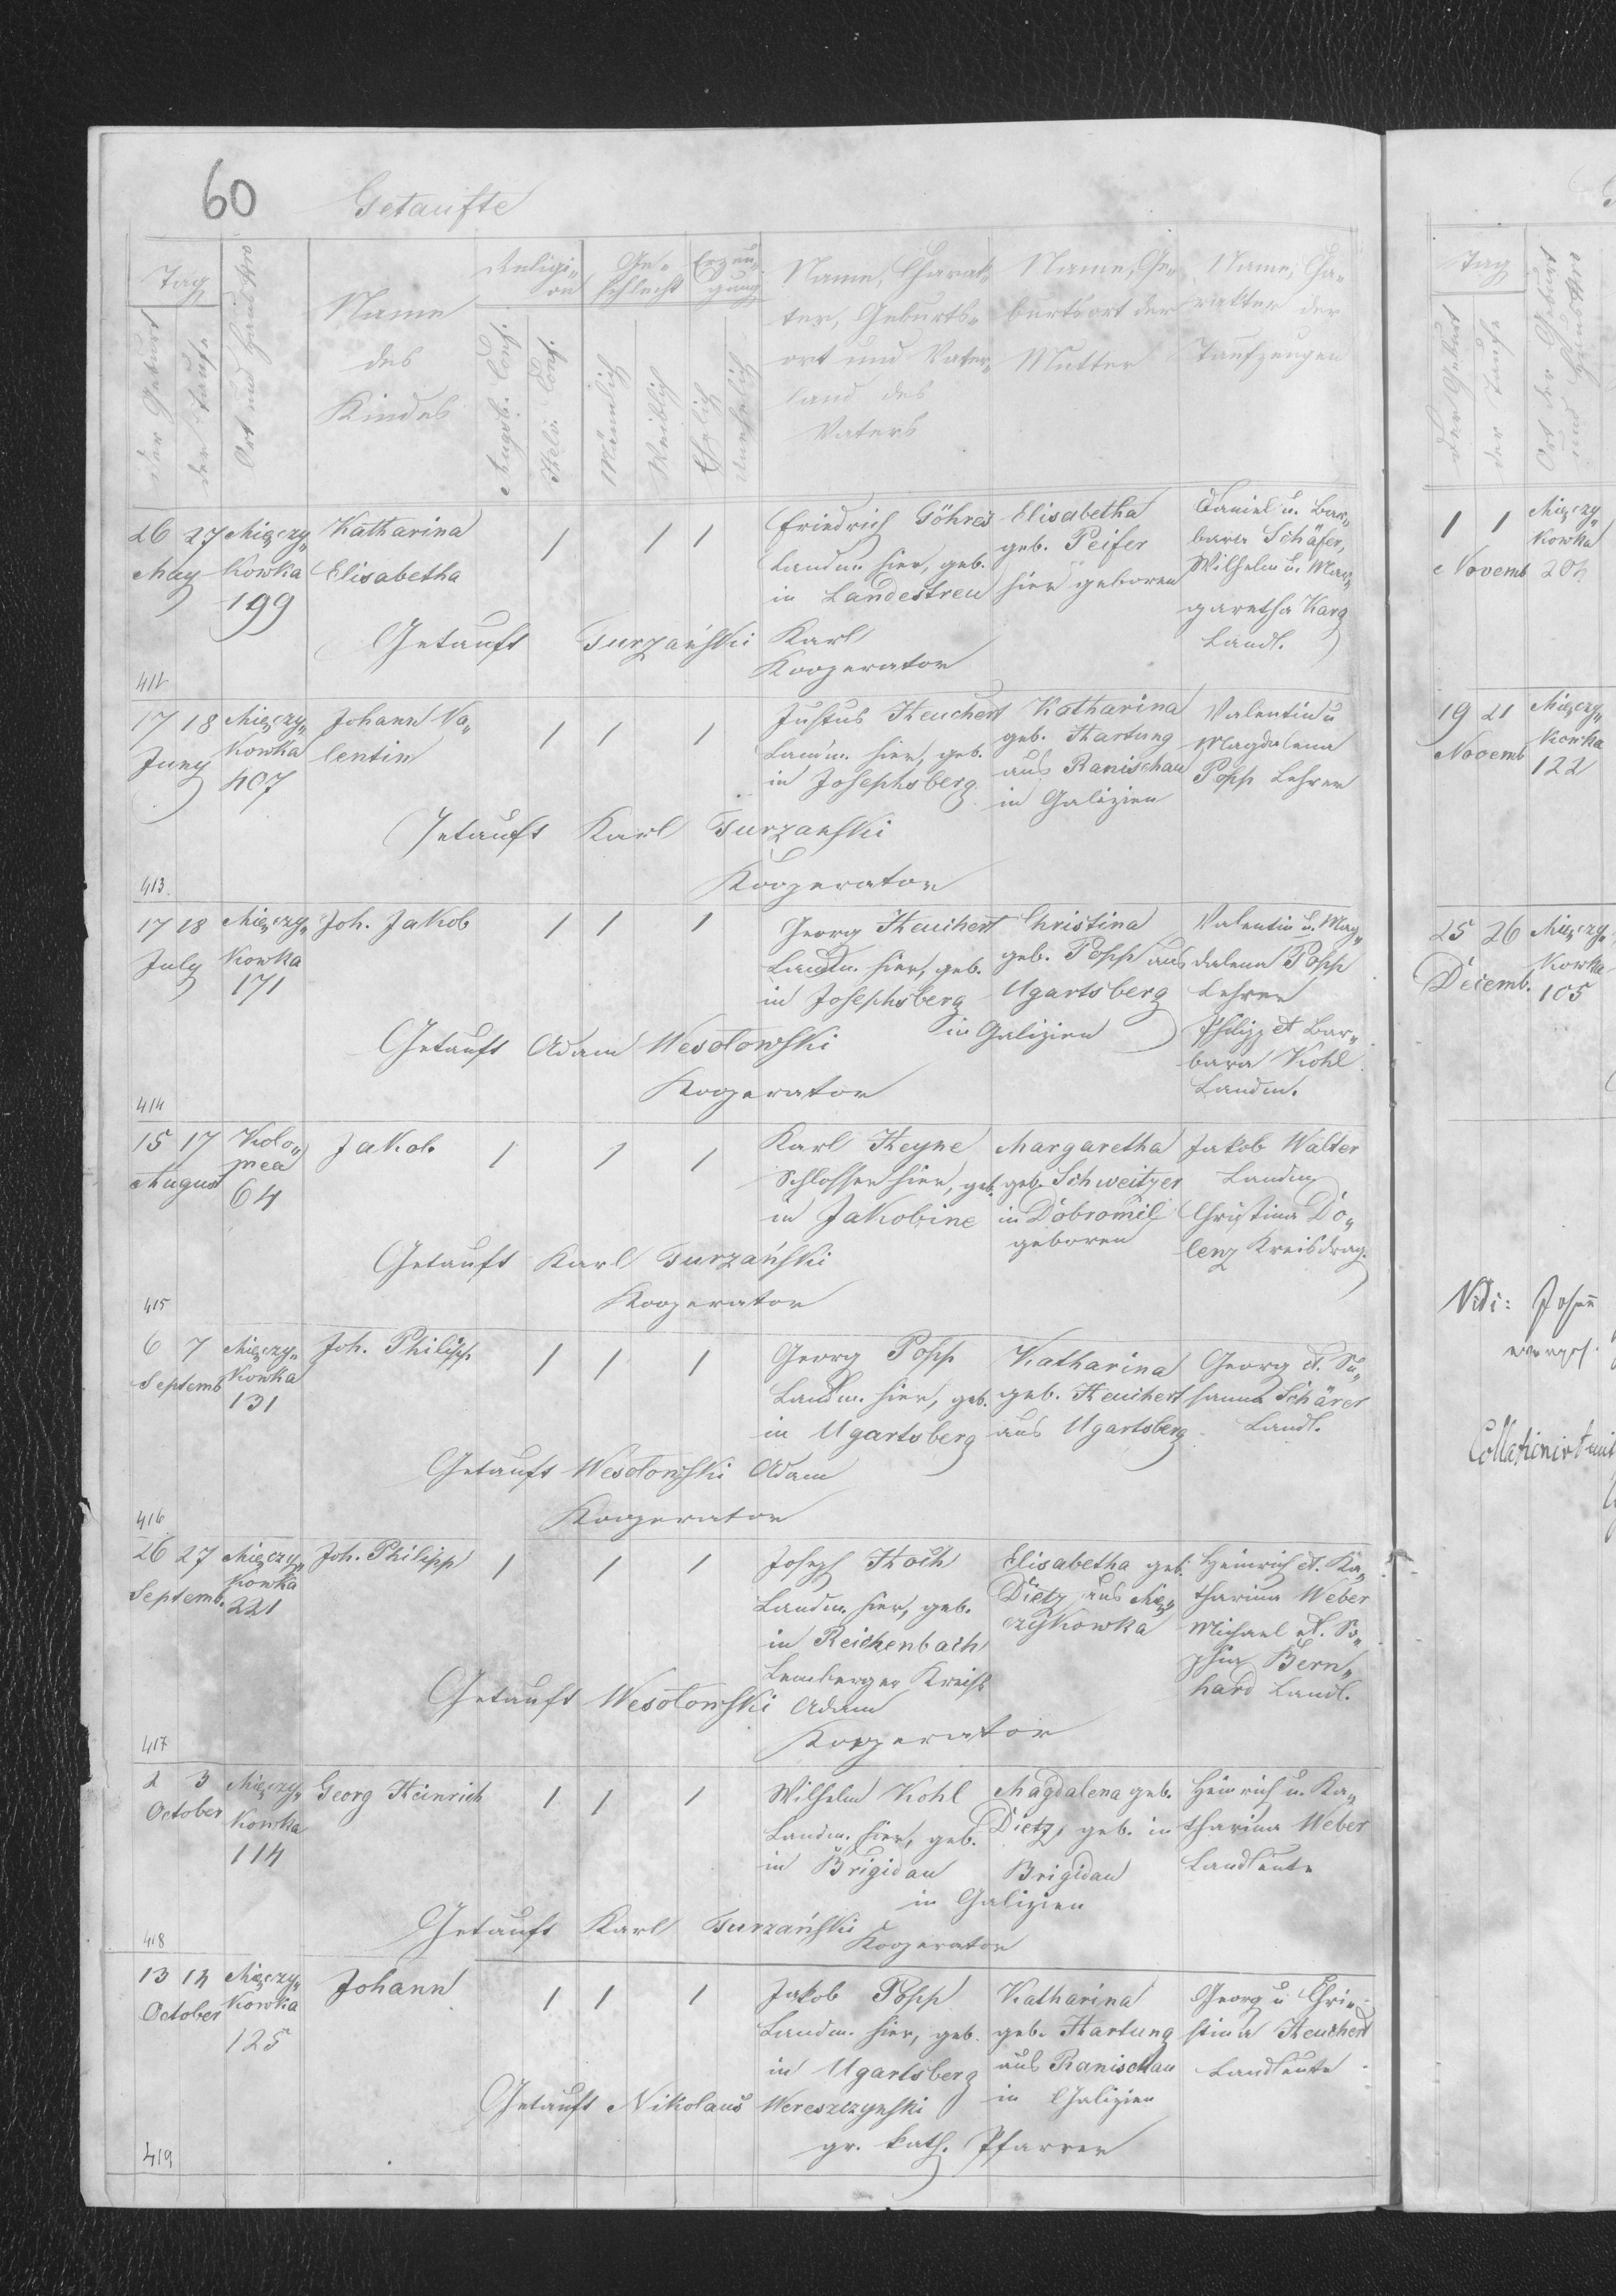 60
Getaufte
Tag
der Geburt
der Taufe
Ort und Haus Nro
Name
des
Kindes
Religi-
on
Augsb. Conf.
Helv. Conf.
Ge-
schlecht
Männlich
Weiblich
Erzeu-
gung
Ehelich
Unehelich
Name, Charak-
ter, Geburts-
ort und Vater-
land des
Vaters
Name, Ge-
burtsort der
Mutter
Name, Cha-
rakter der
Taufzeugen
26 27 Mięczy-
May kowka
199
Katharina
Elisabetha
1 1 1
Friedrich Göhres
Landm. hier, geb.
in Landestreu
Elisabetha
geb. Peifer
hier geboren
Daniel u. Bar-
bara Schäfer,
Wilhelm u. Mar-
garetha Karg
Landl.
Getauft Turzański Karl
Kooperator
412
17 18 Mięczy-
Juny kowka
107
Johann Va-
lentin
1 1 1
Justus Heuchert
Landm. hier, geb.
in Josephsberg
Katharina
geb. Hartung
aus Ranischau
in Galizien
Valentin u
Magdalena
Popp Lehrer
Getauft Karl Turzański
Kooperator
413
17 18 Mięczy-
July kowka
171
Joh. Jakob
1 1 1
Georg Heuchert
Landm. hier, geb.
in Josephsberg
Christina
geb. Popp aus
Ugartsberg
in Galizien
Valentin u. Mag-
dalena Popp
Lehrer
Philipp et Bar-
bara Kohl
Landm.
Getauft Adam Wesołowski
Kooperator
414
15 17 Kolo-
August mea
64
Jakob
1 1 1
Karl Heyne
Schlosser hier, geb.
in Jakobine
Margaretha
geb. Schweitzer
in Dobromil
geboren
Jakob Walter
Landm
Christina Do-
lenz Kreisdrag.
Getauft Karl Turzański
Kooperator
415
6 7 Mięczy-
Septemb kowka
131
Joh. Philipp
1 1 1
Georg Popp
Landm. hier, geb.
in Ugartsberg
Katharina
geb. Heuchert
aus Ugartsberg
Georg et. Su-
sanna Schärer
Landl.
Getauft Wesołowski Adam
Kooperator
416
26 27 Mięczy-
Septemb. kowka
221
Joh. Philipp
1 1 1
Joseph Koch
Landm. hier, geb.
in Reichenbach
Lemberger Kreise
Elisabetha geb.
Dietz aus Mię-
czykowka
Heinrich et. Ka-
tharina Weber
Michael et. So-
phia Bern-
hard Landl.
Getauft Wesołowski Adam
Kooperator
417
2 3 Mięczy-
October kowka
114
Georg Heinrich
1 1 1
Wilhelm Kohl
Landm. hier, geb.
in Brigidau
Magdalena geb.
Dietz, geb. in
Brigidau
in Galizien
Heinrich u. Ka-
tharina Weber
Landleute
Getauft Karl Turzański
Kooperator
418
13 14 Mięczy-
October kowka
125
Johann
1 1 1
Jakob Popp
Landm. hier, geb.
in Ugartsberg
Katharina
geb. Hartung
aus Ranischau
in Galizien
Georg u Chri-
stina Heuchert
Landleute
Getauft Nikolaus Wereszczynski
gr. kath. Pfarrer
419
Tag
der Geburt
der Taufe
Ort der Geburt
und Haus Nro
1 1 Mięczy-
kowka
Novemb
19 21 Mięczy-
kowka
Novemb 122
25 26 Mięczy-
kowka
Decemb. 105
Vidi: Johann
Collationirt mit